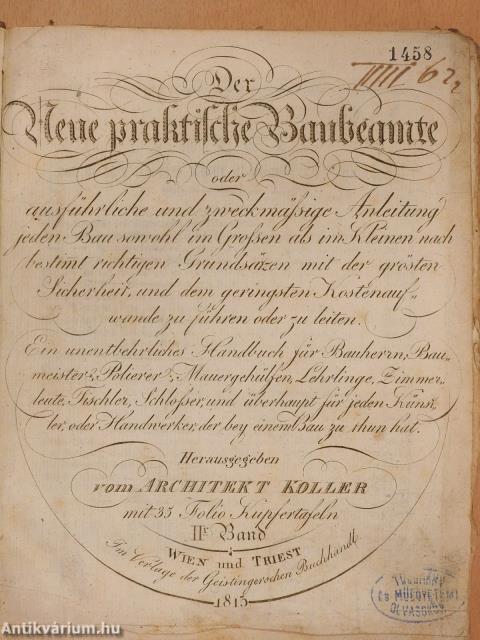 1458
IIII 62
Der
Neue praktische Baubeamte
oder
ausführliche und zweckmäßige Anleitung
jeden Bau sowohl im Großen als im Kleinen nach
bestimt richtigen Grundsäzen mit der grösten
Sicherheit, und dem geringsten Kostenauf„
wande zu führen oder zu leiten.
Ein unentbehrliches Handbuch für Bauherrn, Bau„
meister, Polierer, Mauergehülfen, Lehrlinge, Zimmer„
leute, Tischler, Schlosser, und überhaupt für jeden Küns„
ler, oder Handwerker, der bey einem Bau zu thun hat.
Herausgegeben
vom ARCHITEKT KOLLER
mit 35 Folio Kupfertafeln
IIr Band
WIEN und TRIEST
Im Verlage der Geistingerschen Buchhandl.
1815
ÉS MŰEGYETEMI
OLVASÓKÖR
Antikvárium.hu